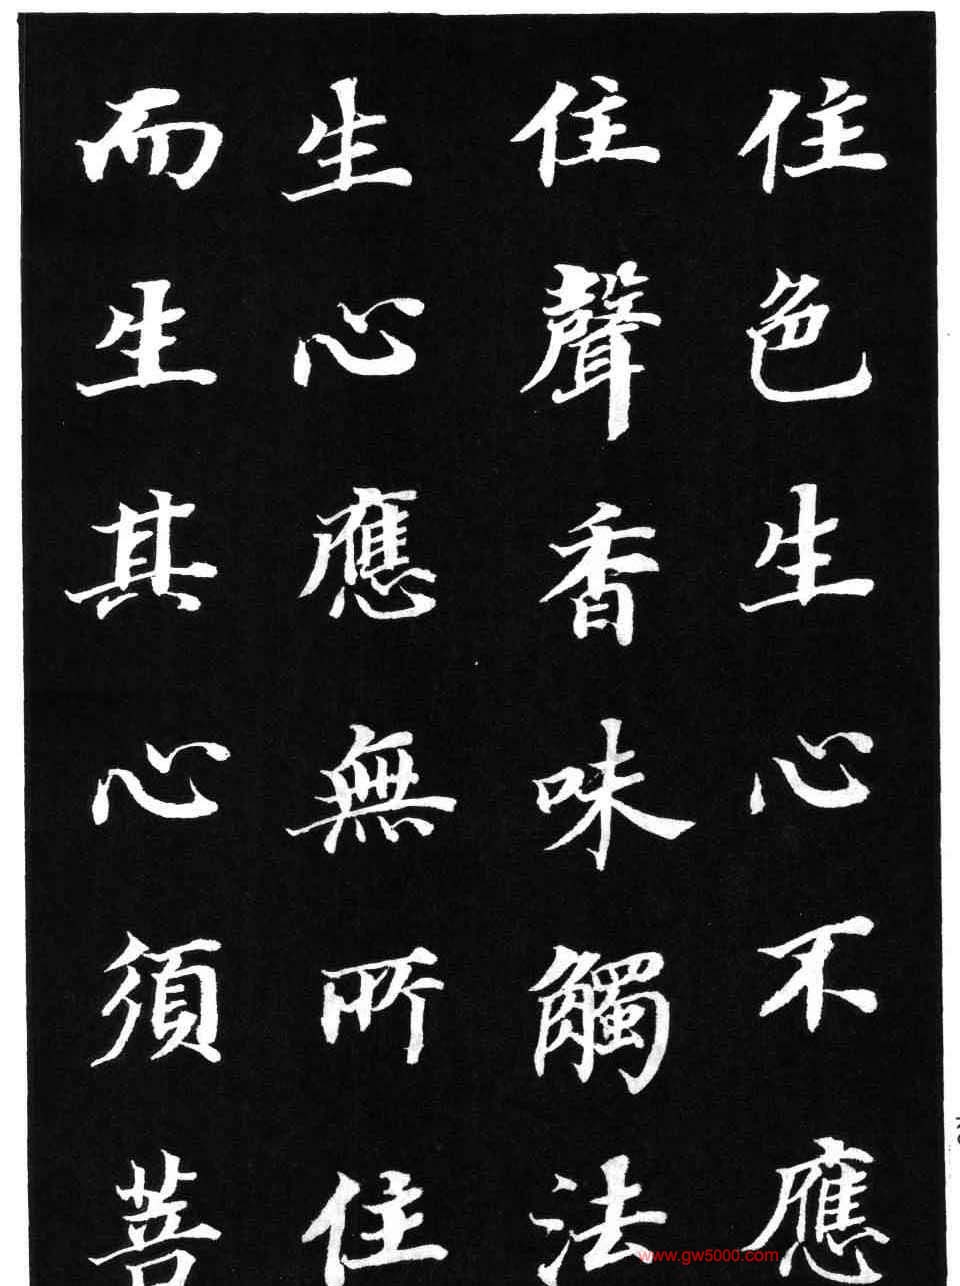 住色生心不應
住聲香味觸法
生心應無所住
而生其心須菩
www.gw5000.com